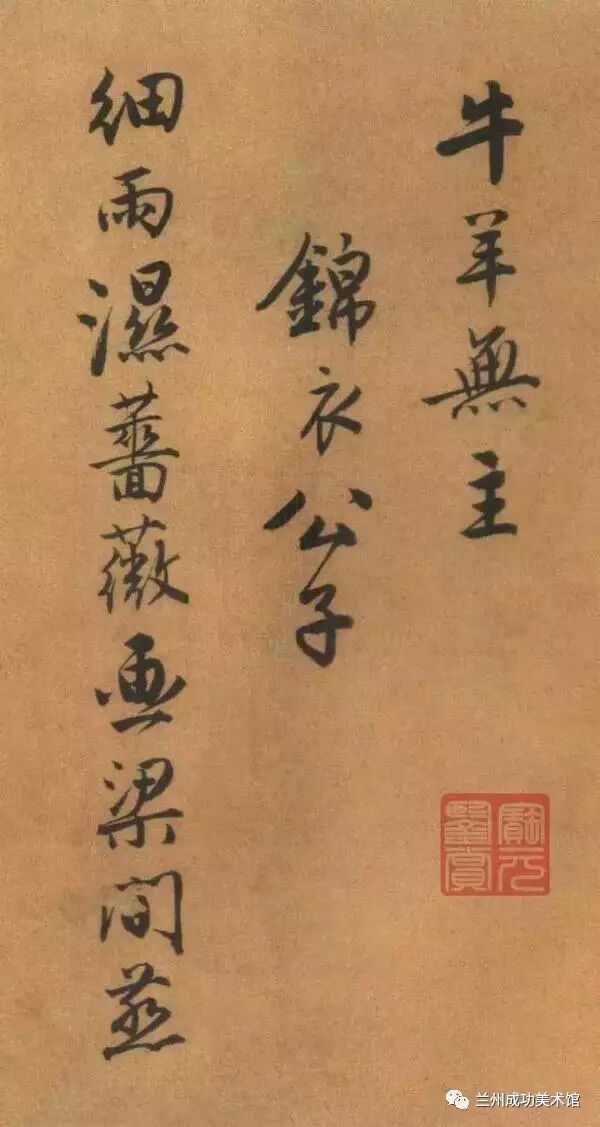 牛羊無主
錦衣公子
細雨濕薔薇画梁間燕
兰州成功美术馆